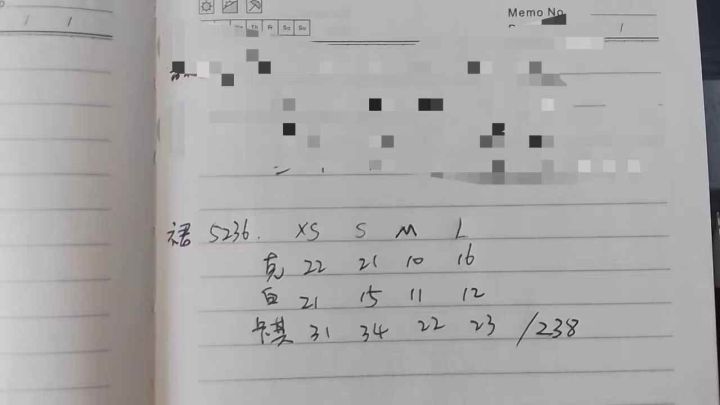 Memo No.
Th Fr Sa Su
裙 5236. XS S M L
克 22 21 10 16
白 21 15 11 12
卡其 31 34 22 23 /238